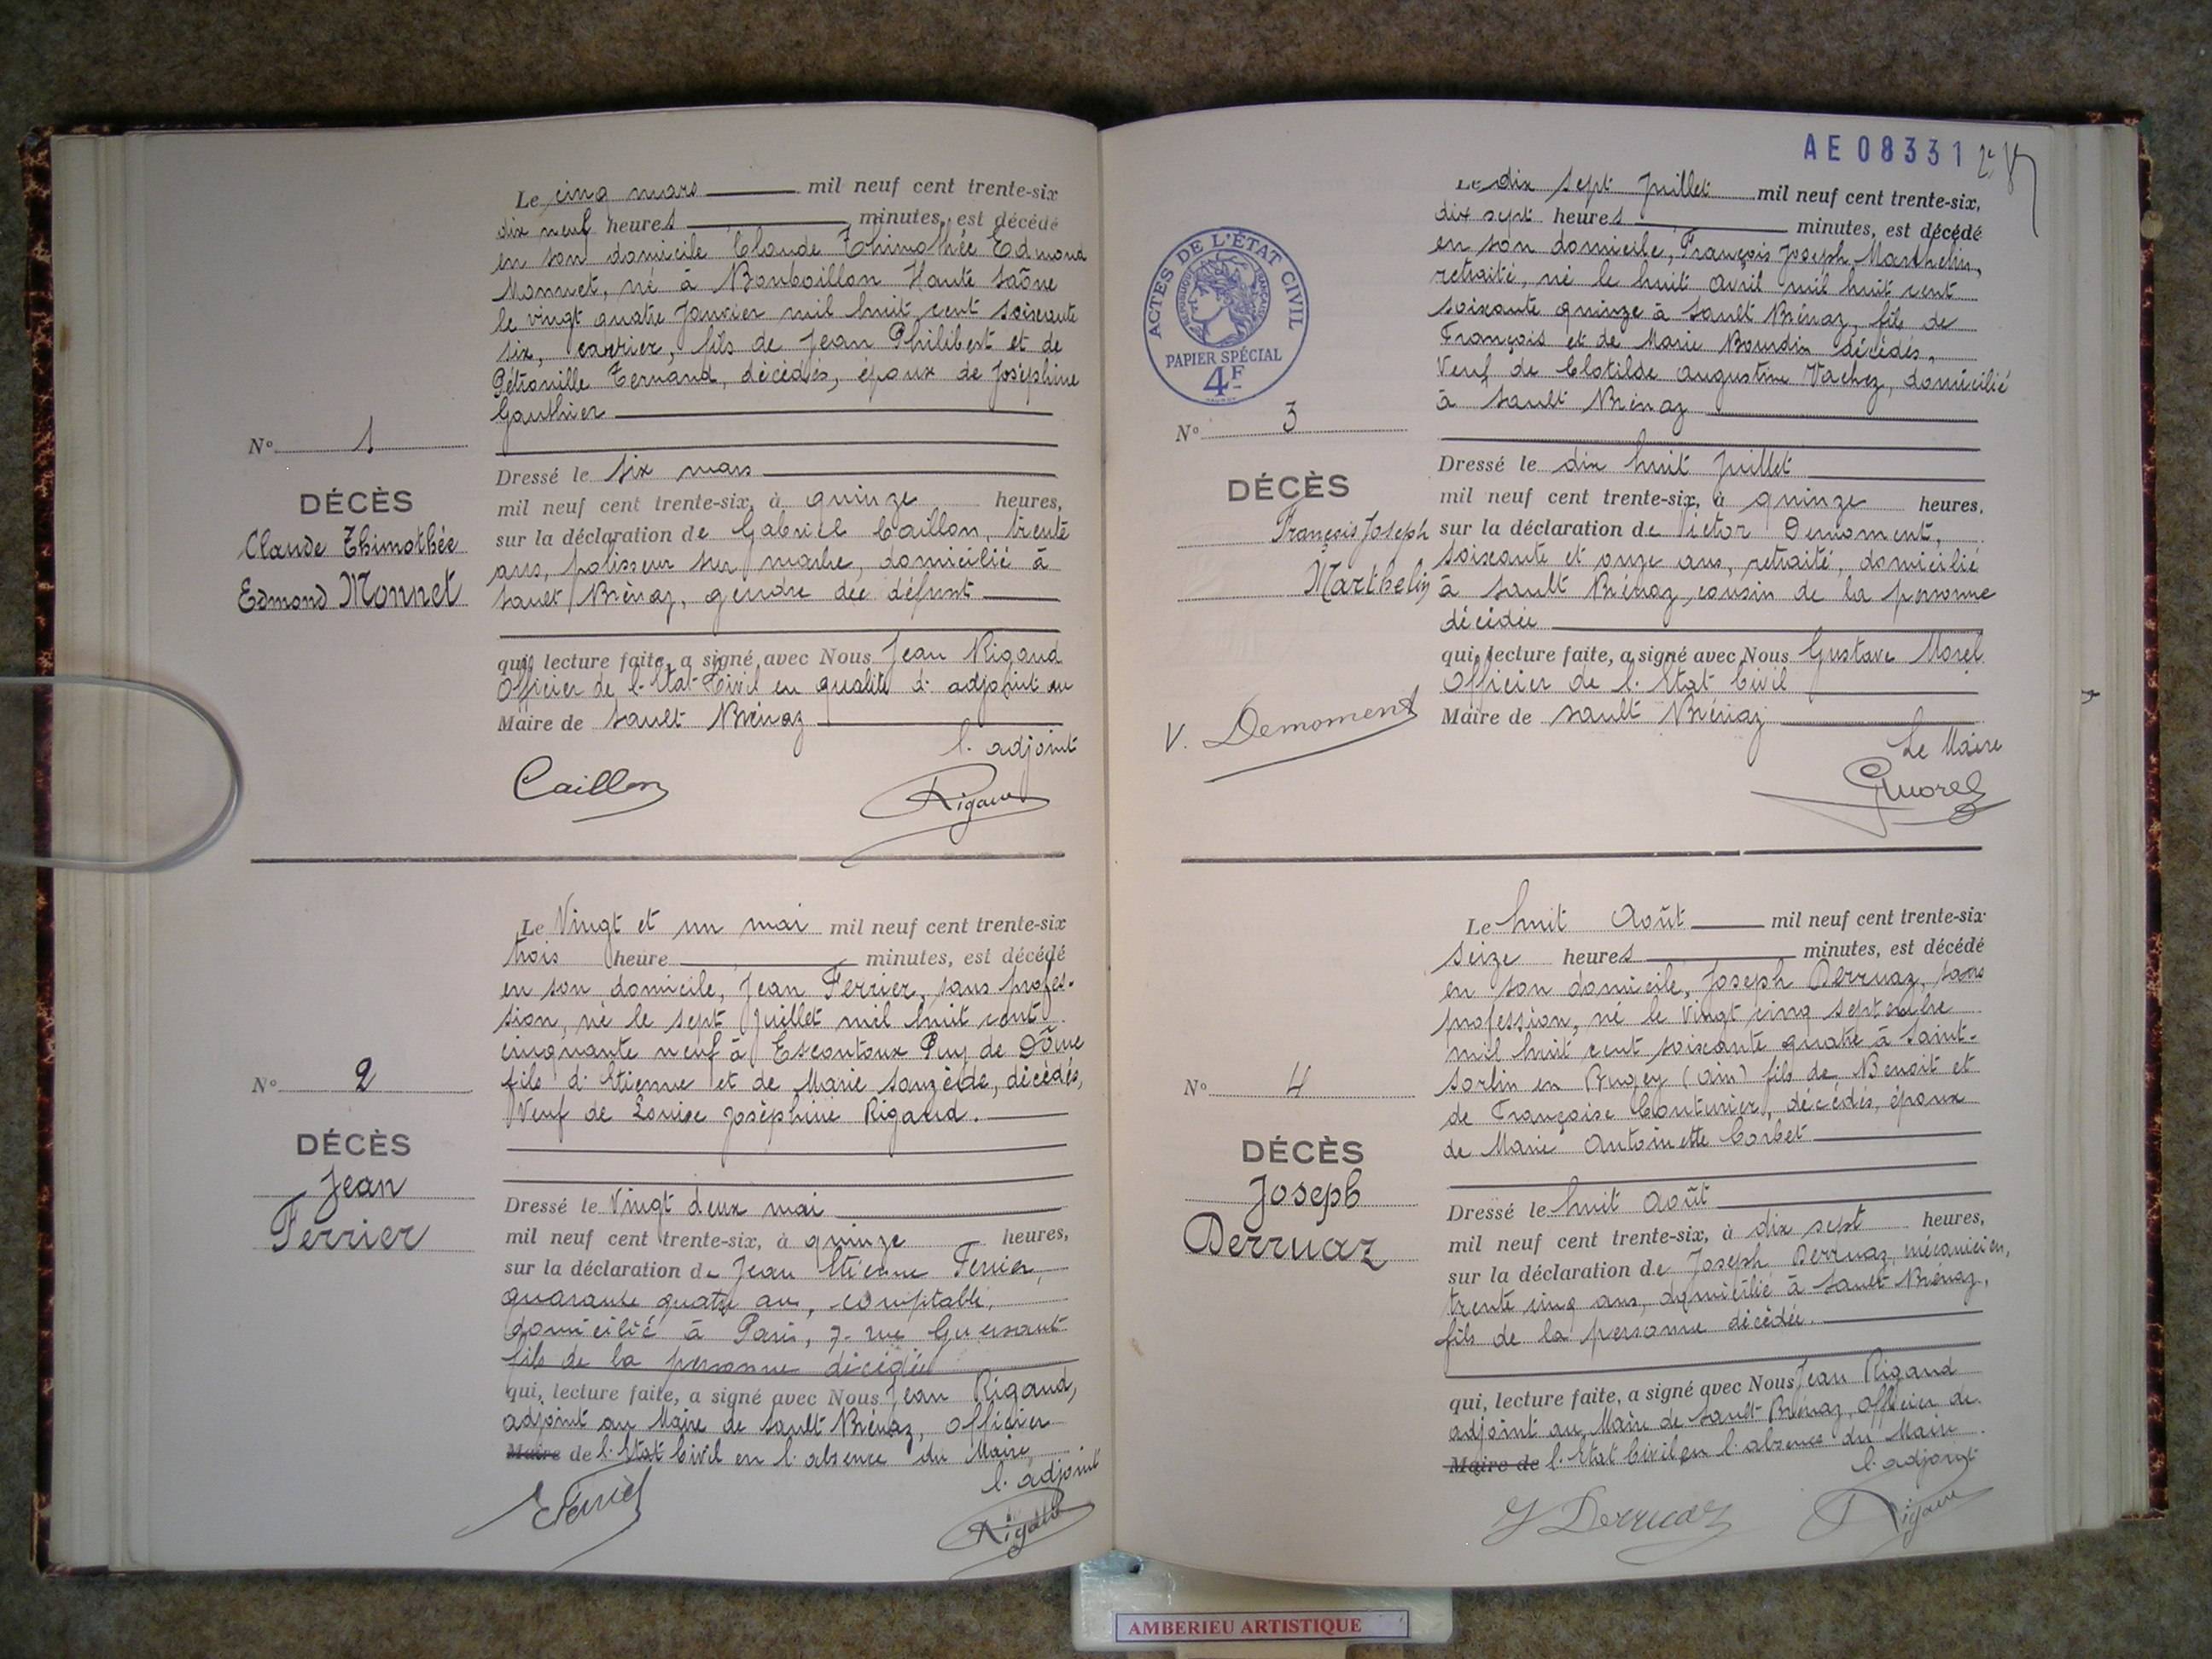 Le cinq mars mil neuf cent trente-six
dix neuf heures minutes, est décédé
en son domicile Claude Thimothée Edmond
Monnet, né à Bonboillon Haute Saône
le vingt quatre Janvier mil huit cent soixante
six, carrier, fils de Jean Philibert et de
Pétronille Ternand, décédés, époux de Joséphine
Gauthier
N° 1
DÉCÈS
Claude Thimothée
Edmond Monnet
Dressé le six mars
mil neuf cent trente-six, à quinze heures,
sur la déclaration de Gabriel Caillon, trente
ans, polisseur sur marbre, domicilié à
Sault Brénaz, gendre du défunt
qui, lecture faite, a signé avec Nous Jean Rigaud
Officier de l'Etat-Civil en qualité d'adjoint au
Maire de Sault Brénaz
l'adjoint
Caillon
Rigaud
Le Vingt et un mai mil neuf cent trente-six
trois heure minutes, est décédé
en son domicile, Jean Ferrier, sans profes-
sion, né le sept Juillet mil huit cent
cinquante neuf à Escoutoux Puy de Dôme
fils d'Etienne et de Marie Sauzède, décédés,
Veuf de Louise Joséphine Rigaud.
N° 2
DÉCÈS
Jean
Ferrier
Dressé le Vingt deux mai
mil neuf cent trente-six, à quinze heures,
sur la déclaration de Jean Etienne Ferrier,
quarante quatre ans, comptable,
domicilié à Paris, 7. rue Guersant
fils de la personne décédée
qui, lecture faite, a signé avec Nous Jean Rigaud,
adjoint au Maire de Sault Brénaz, officier
Maire de l'Etat Civil en l'absence du Maire
l'adjoint
EFerrier
Rigaud
AE 08331
Le dix sept Juillet mil neuf cent trente-six,
dix sept heures minutes, est décédé
en son domicile, François Joseph Marthelin,
retraité, né le huit Avril mil huit cent
soixante quinze à Sault Brénaz, fils de
François et de Marie Bourdin décédés,
Veuf de Clotilde Augustine Vachez, domicilié
à Sault Brénaz
ACTES DE L'ÉTAT CIVIL
RÉPUBLIQUE FRANÇAISE
PAPIER SPÉCIAL
4F
N° 3
DÉCÈS
François Joseph
Marthelin
Dressé le dix huit Juillet
mil neuf cent trente-six, à quinze heures,
sur la déclaration de Victor Demoment,
soixante et onze ans, retraité, domicilié
à Sault Brénaz, cousin de la personne
décédée
qui, lecture faite, a signé avec Nous Gustave Morel
Officier de l'Etat Civil
Maire de Sault Brénaz
V. Demoment
Le Maire
GMorel
Le huit Août mil neuf cent trente-six
seize heures minutes, est décédé
en son domicile, Joseph Derruaz, sans
profession, né le Vingt cinq septembre
mil huit cent soixante quatre à Saint-
Sorlin en Bugey (Ain) fils de Benoit et
de Françoise Couturier, décédés, époux
de Marie Antoinette Corbet
N° 4
DÉCÈS
Joseph
Derruaz
Dressé le huit Août
mil neuf cent trente-six, à dix sept heures,
sur la déclaration de Joseph Derruaz, mécanicien,
trente cinq ans, domicilié à Sault-Brénaz,
fils de la personne décédée.
qui, lecture faite, a signé avec Nous Jean Rigaud
adjoint au Maire de Sault-Brénaz, officier de
Maire de l'Etat Civil en l'absence du Maire
l'adjoint
J Derruaz
Rigaud
AMBERIEU ARTISTIQUE